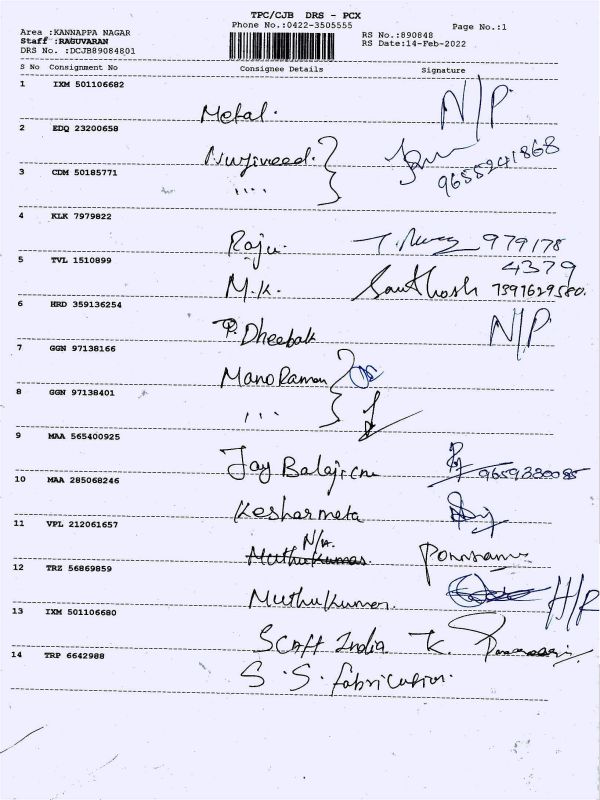 TPC/CJB DRS - PCX
Phone No.:0422-3505555
Page No.:1
Area :KANNAPPA NAGAR
Staff :RAGUVARAN
DRS No. :DCJB89084801
RS No.:890848
RS Date:14-Feb-2022
S No Consignment No Consignee Details Signature
1 IXM 501106682
Metal. N/P
2 EDQ 23200658
Nurjineed. 9655241868
3 CDM 50185771
" "
4 KLK 7979822
Raju. 979178
4379
5 TVL 1510899
M.K. Santhosh 7397629580.
6 HRD 359136254
P. Dheebak N/P
7 GGN 97138166
Mano Raman
8 GGN 97138401
" "
9 MAA 565400925
Jay Balaji 9659380085
10 MAA 285068246
Keshar meta
11 VPL 212061657
N/A.
Muthukumar
12 TRZ 56869859
Muthukumar.
13 IXM 501106680
Scaff India K.
14 TRP 6642988
S.S. fabrication.